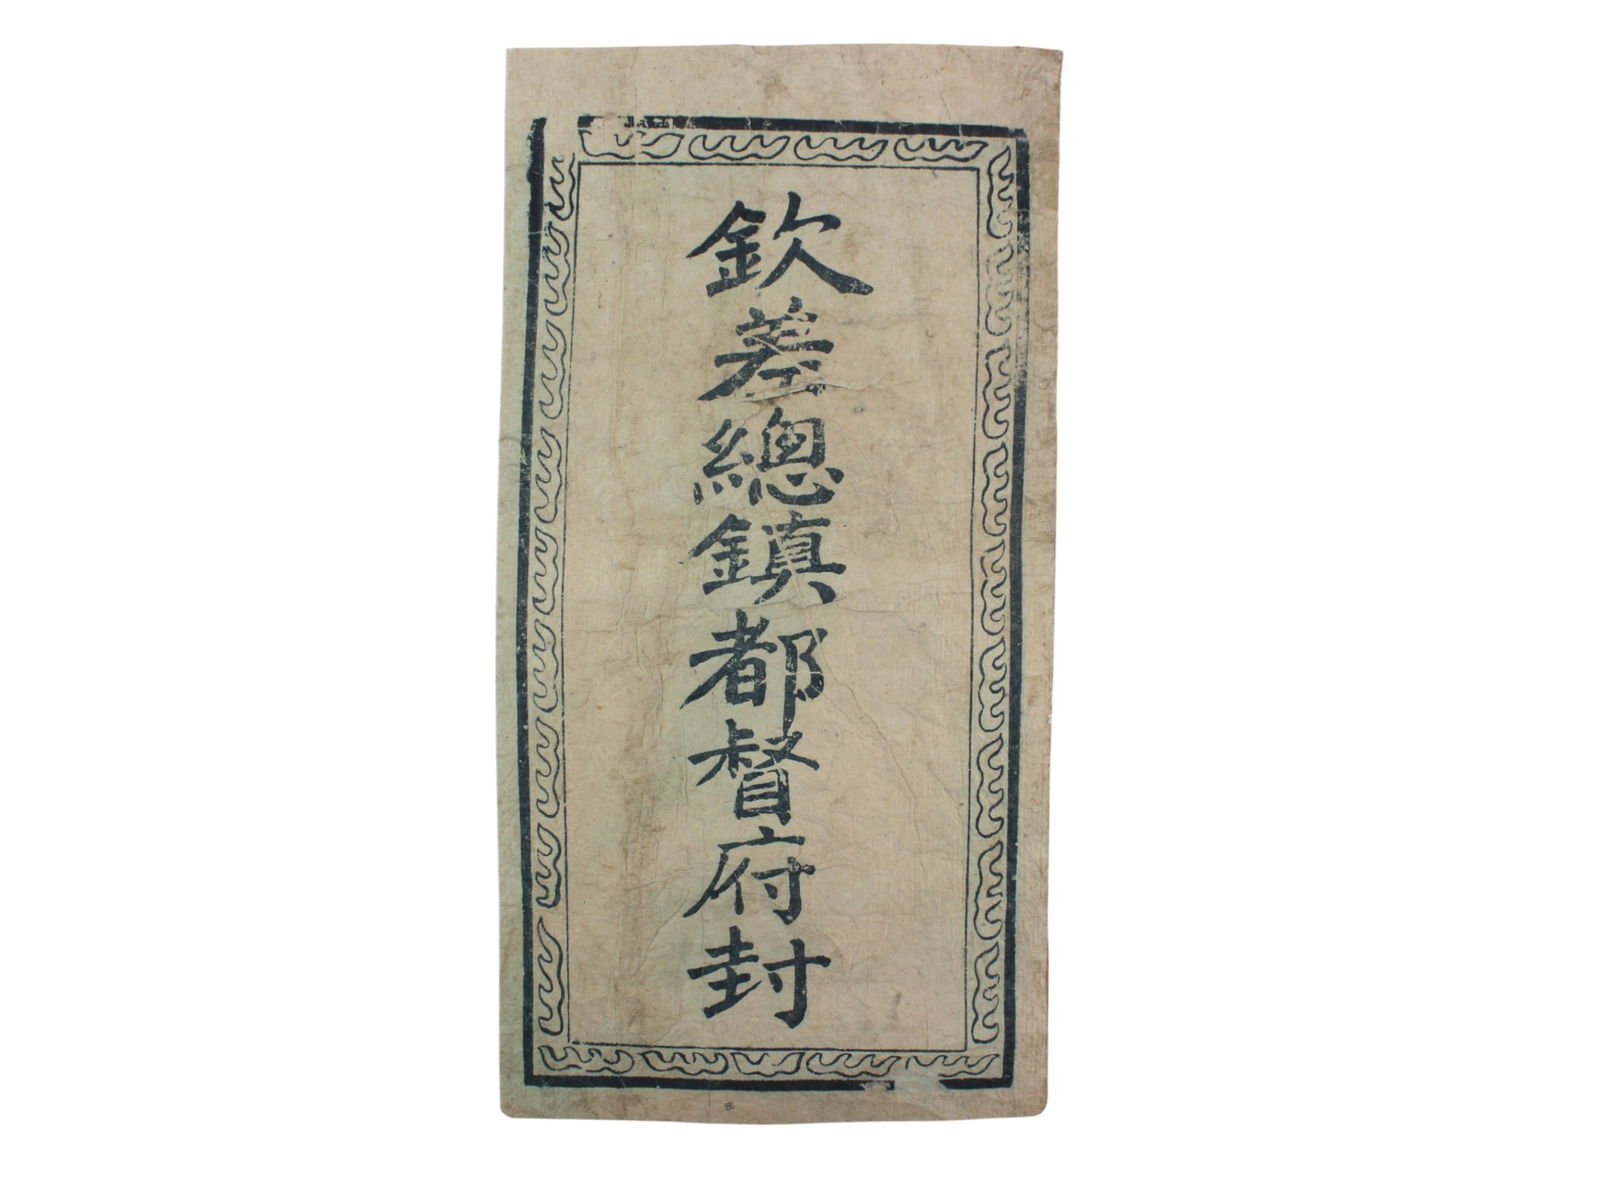 欽差總鎮都督府封